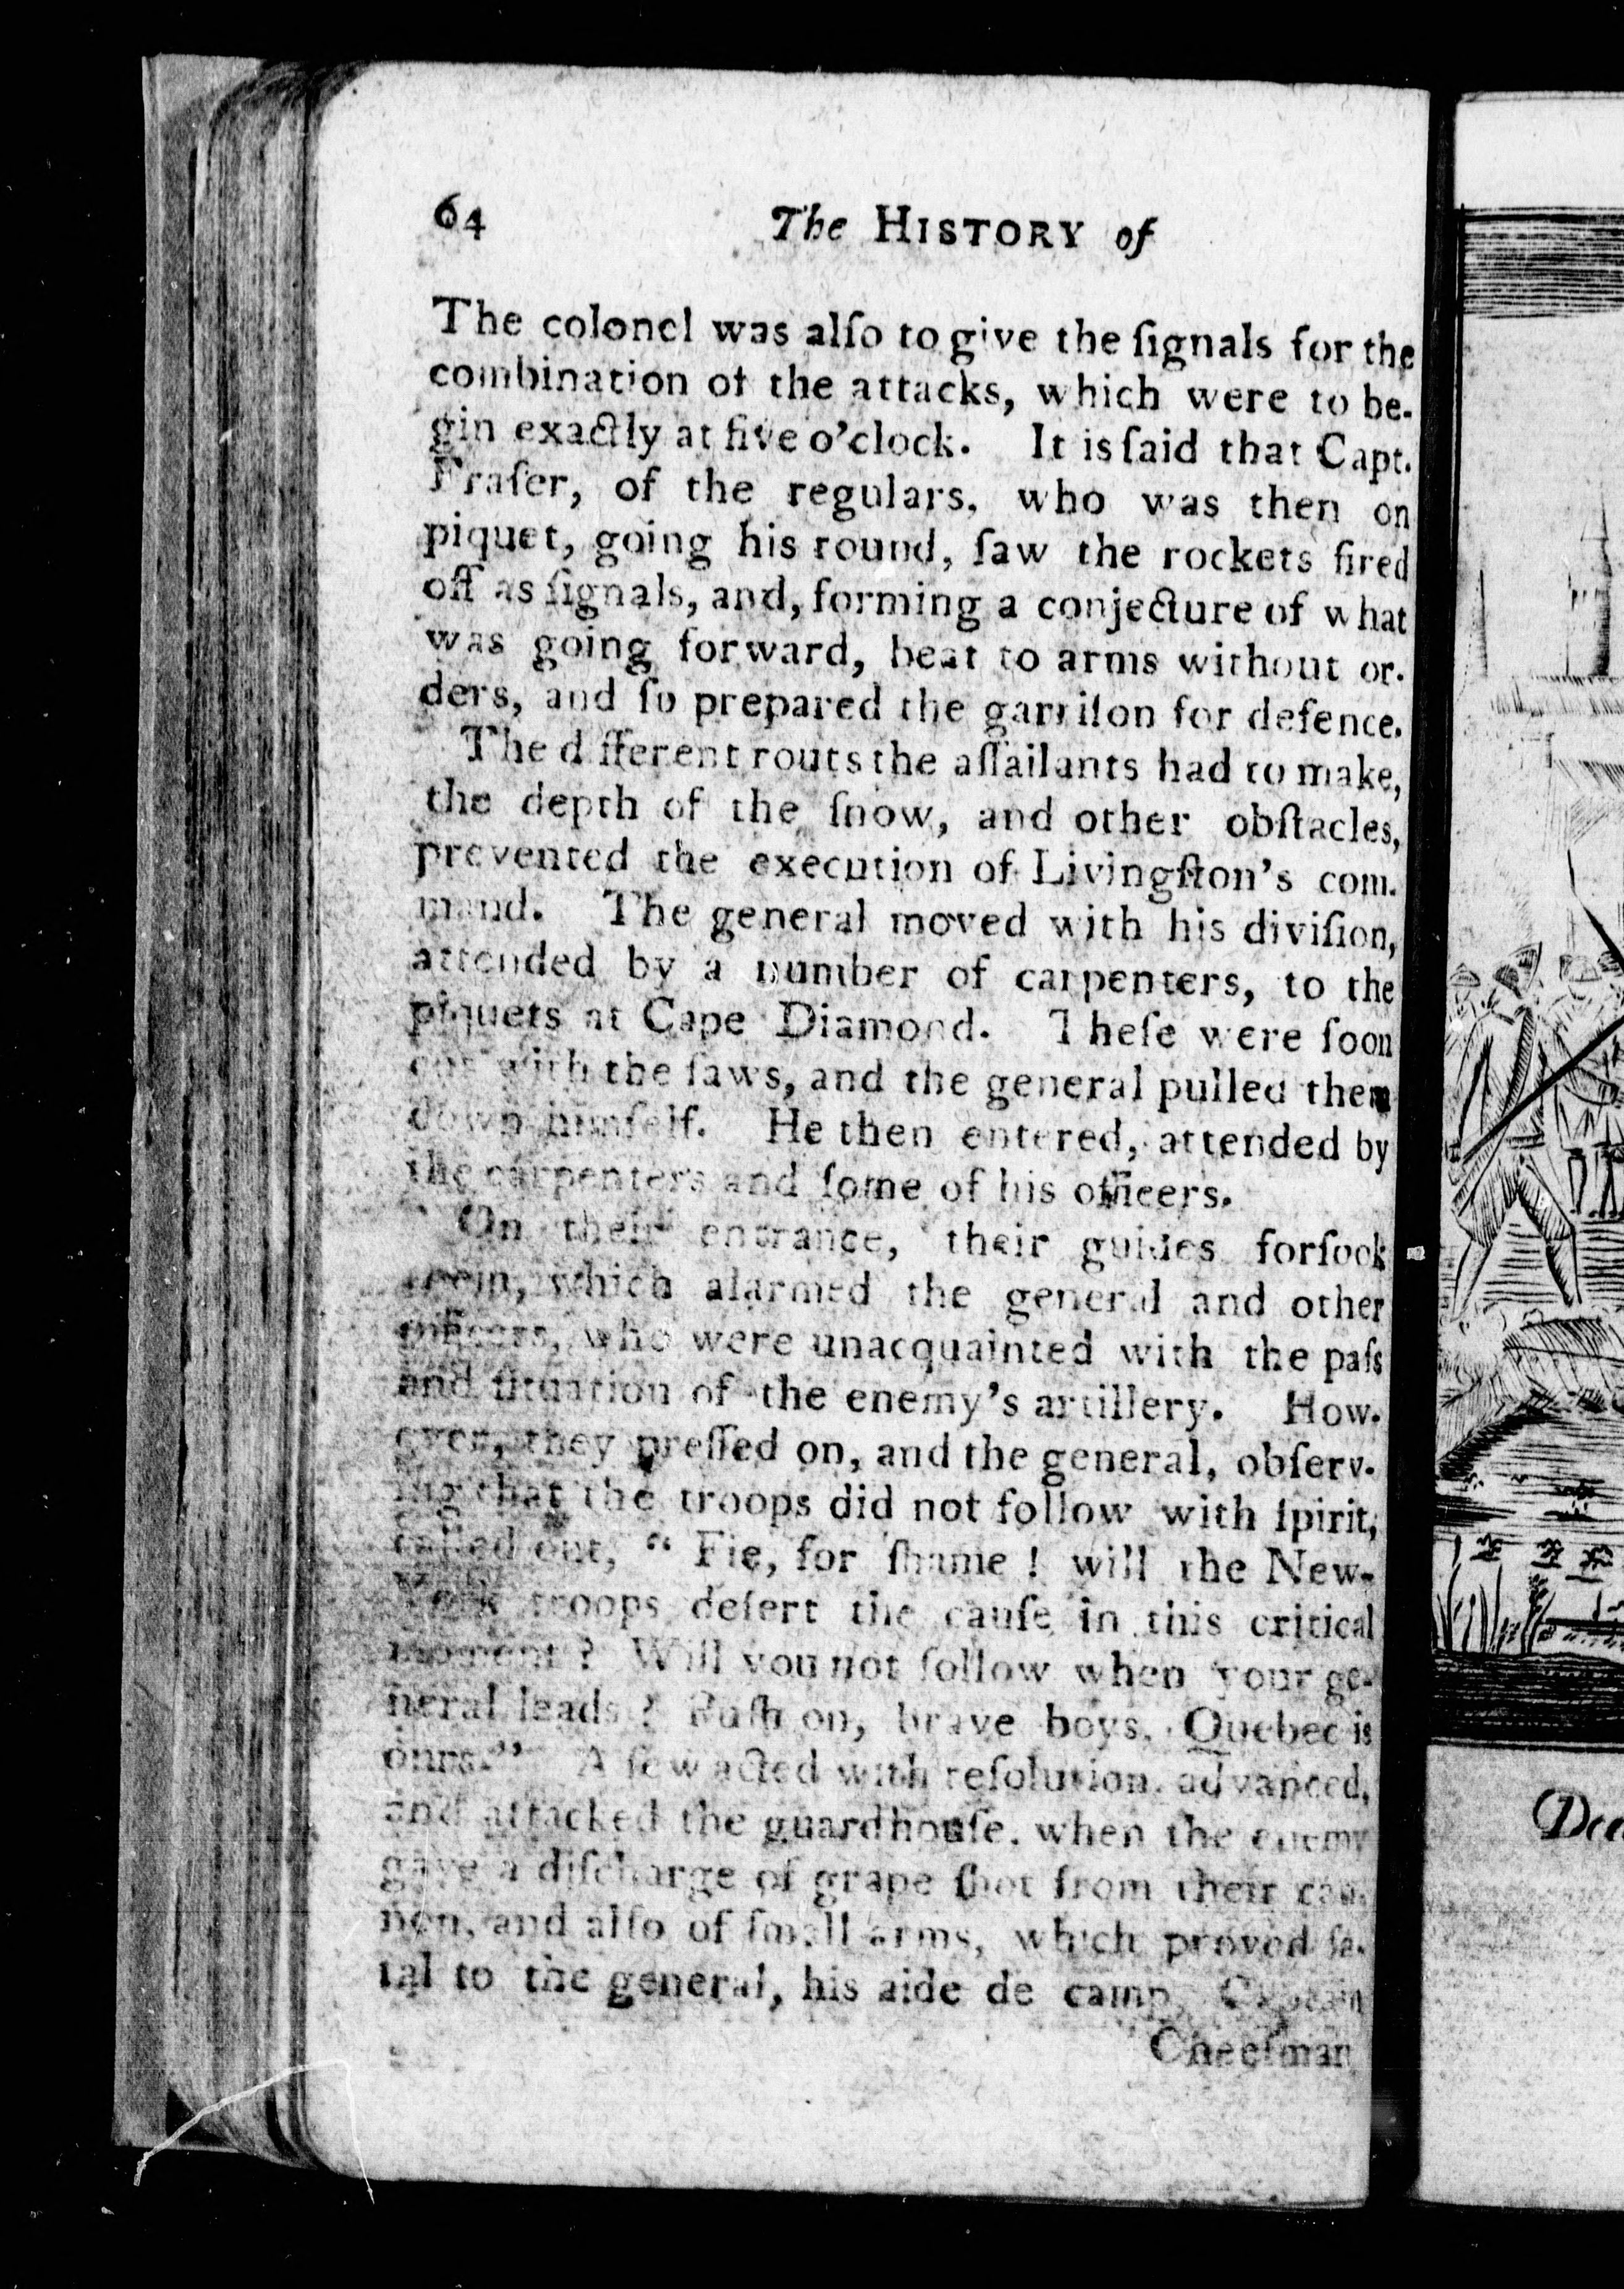 64 The HISTORY of
The colonel was alſo to give the ſignals for the
combination of the attacks, which were to be-
gin exactly at five o'clock. It is ſaid that Capt.
Fraſer, of the regulars, who was then on
piquet, going his round, ſaw the rockets fired
off as ſignals, and, forming a conjecture of what
was going forward, beat to arms without or-
ders, and ſo prepared the garriſon for defence.
The different routs the aſſailants had to make,
the depth of the ſnow, and other obſtacles,
prevented the execution of Livingſton's com-
mand. The general moved with his diviſion,
attended by a number of carpenters, to the
piquets at Cape Diamond. Theſe were ſoon
cut with the ſaws, and the general pulled them
down himſelf. He then entered, attended by
the carpenters and ſome of his officers.
On their entrance, their guides forſook
them, which alarmed the general and other
officers, who were unacquainted with the paſs
and ſituation of the enemy's artillery. How-
ever, they preſſed on, and the general, obſerv-
ing that the troops did not follow with ſpirit,
called out, " Fie, for ſhame ! will the New-
York troops deſert the cauſe in this critical
moment ? Will you not follow when your ge-
neral leads ? Ruſh on, brave boys, Quebec is
ours." A few acted with reſolution, advanced,
and attacked the guardhouſe, when the enemy
gave a diſcharge of grape ſhot from their can-
non, and alſo of ſmall arms, which proved fa-
tal to the general, his aide de camp, Captain
Cheeſman